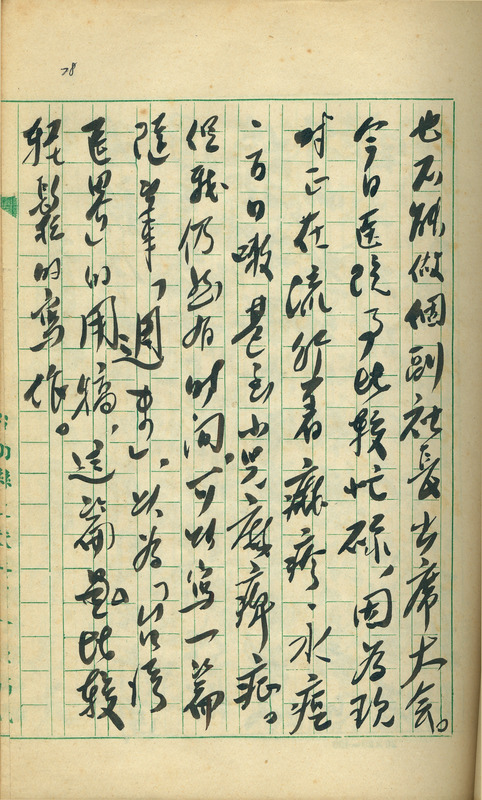 78
也不能做個副社長出席大会。
今日医院事比较忙碌,因為现
时正在流行着麻疹、水痘
、百日嗽甚至小兒麻痺症。
但我仍然有时间,可以寫一篇
隨筆「週末」,以為「台湾
医界」的用稿,這篇是比較
輕鬆的寫作。